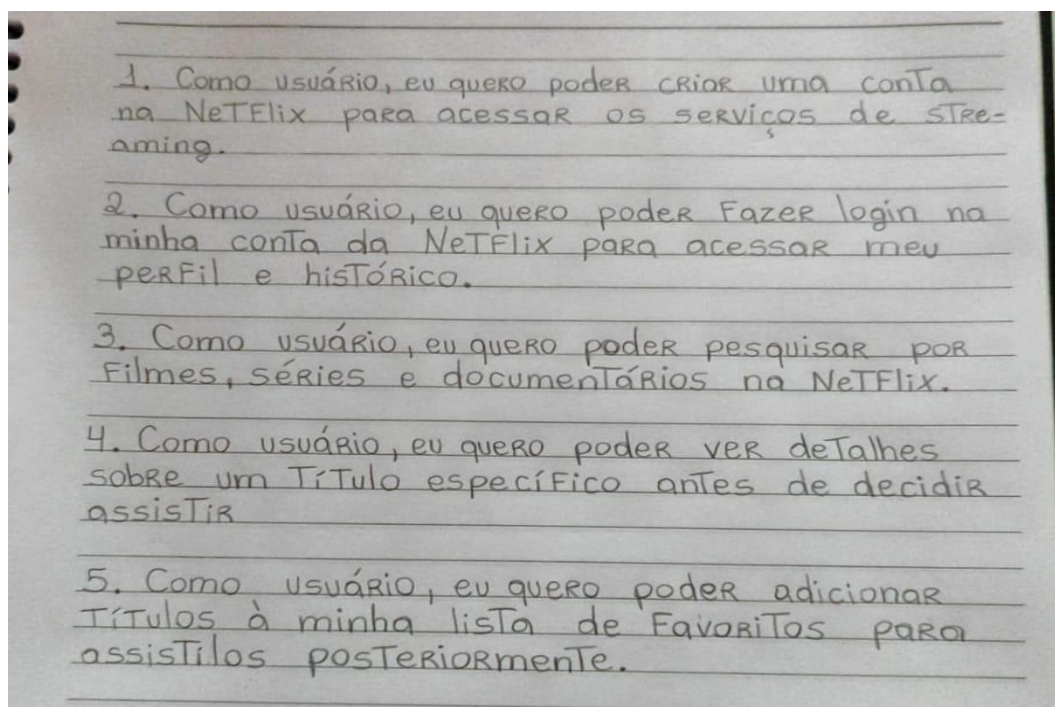 1. Como usuário, eu quero poder criar uma conta
na Netflix para acessar os serviços de stre-
aming.
2. Como usuário, eu quero poder fazer login na
minha conta da Netflix para acessar meu
perfil e histórico.
3. Como usuário, eu quero poder pesquisar por
filmes, séries e documentários na Netflix.
4. Como usuário, eu quero poder ver detalhes
sobre um título específico antes de decidir
assistir
5. Como usuário, eu quero poder adicionar
títulos à minha lista de favoritos para
assistilos posteriormente.